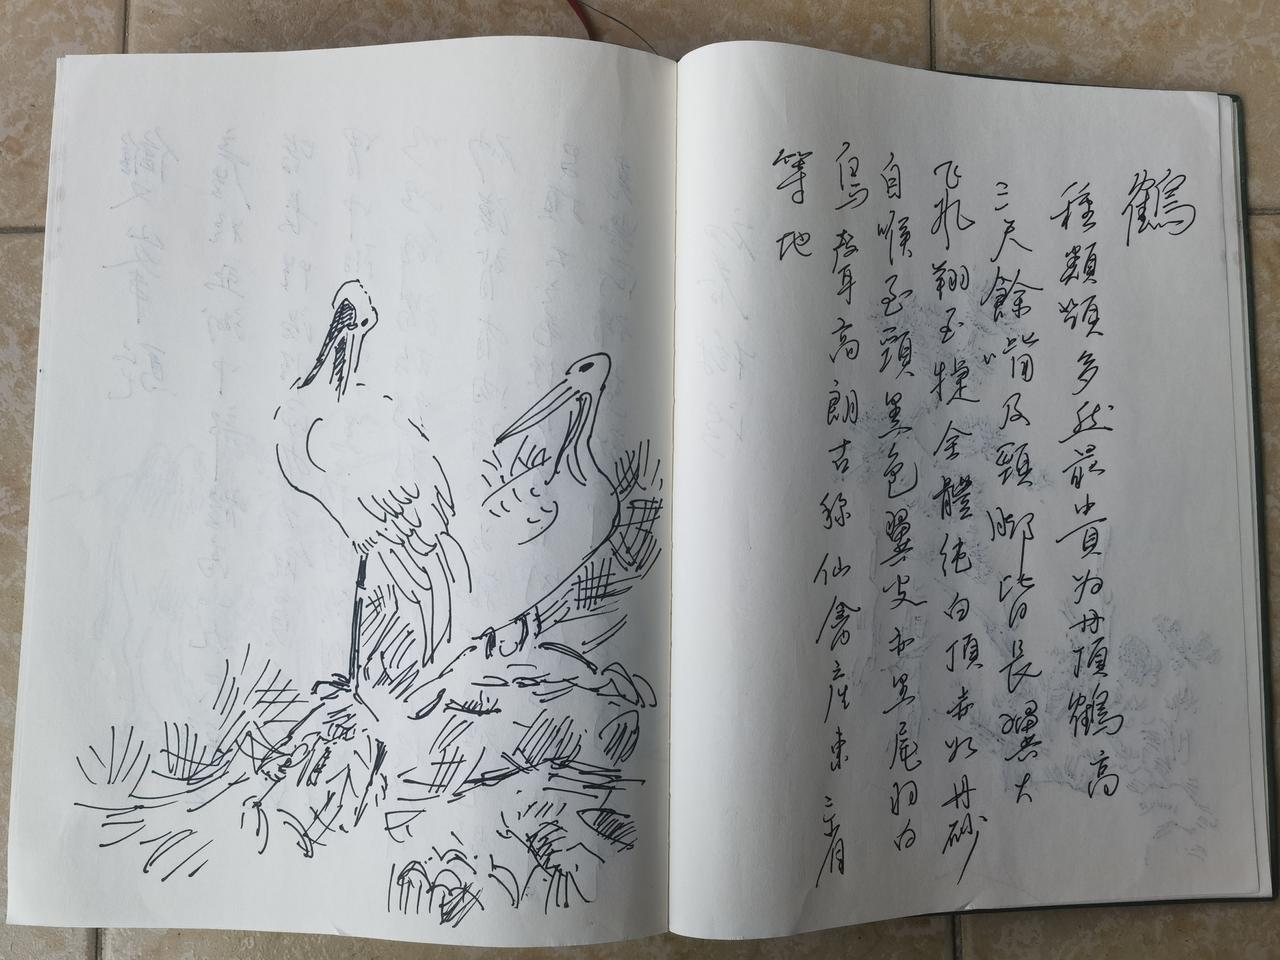 鶴
種類頗多然最貴為丹頂鶴高
三尺餘嘴及頸脚皆長翼大
飞翔全體純白頂赤如丹砂
自喉至頸黑色翼皮亦黑尾羽為
聲高朗古称仙禽產東三省
等地